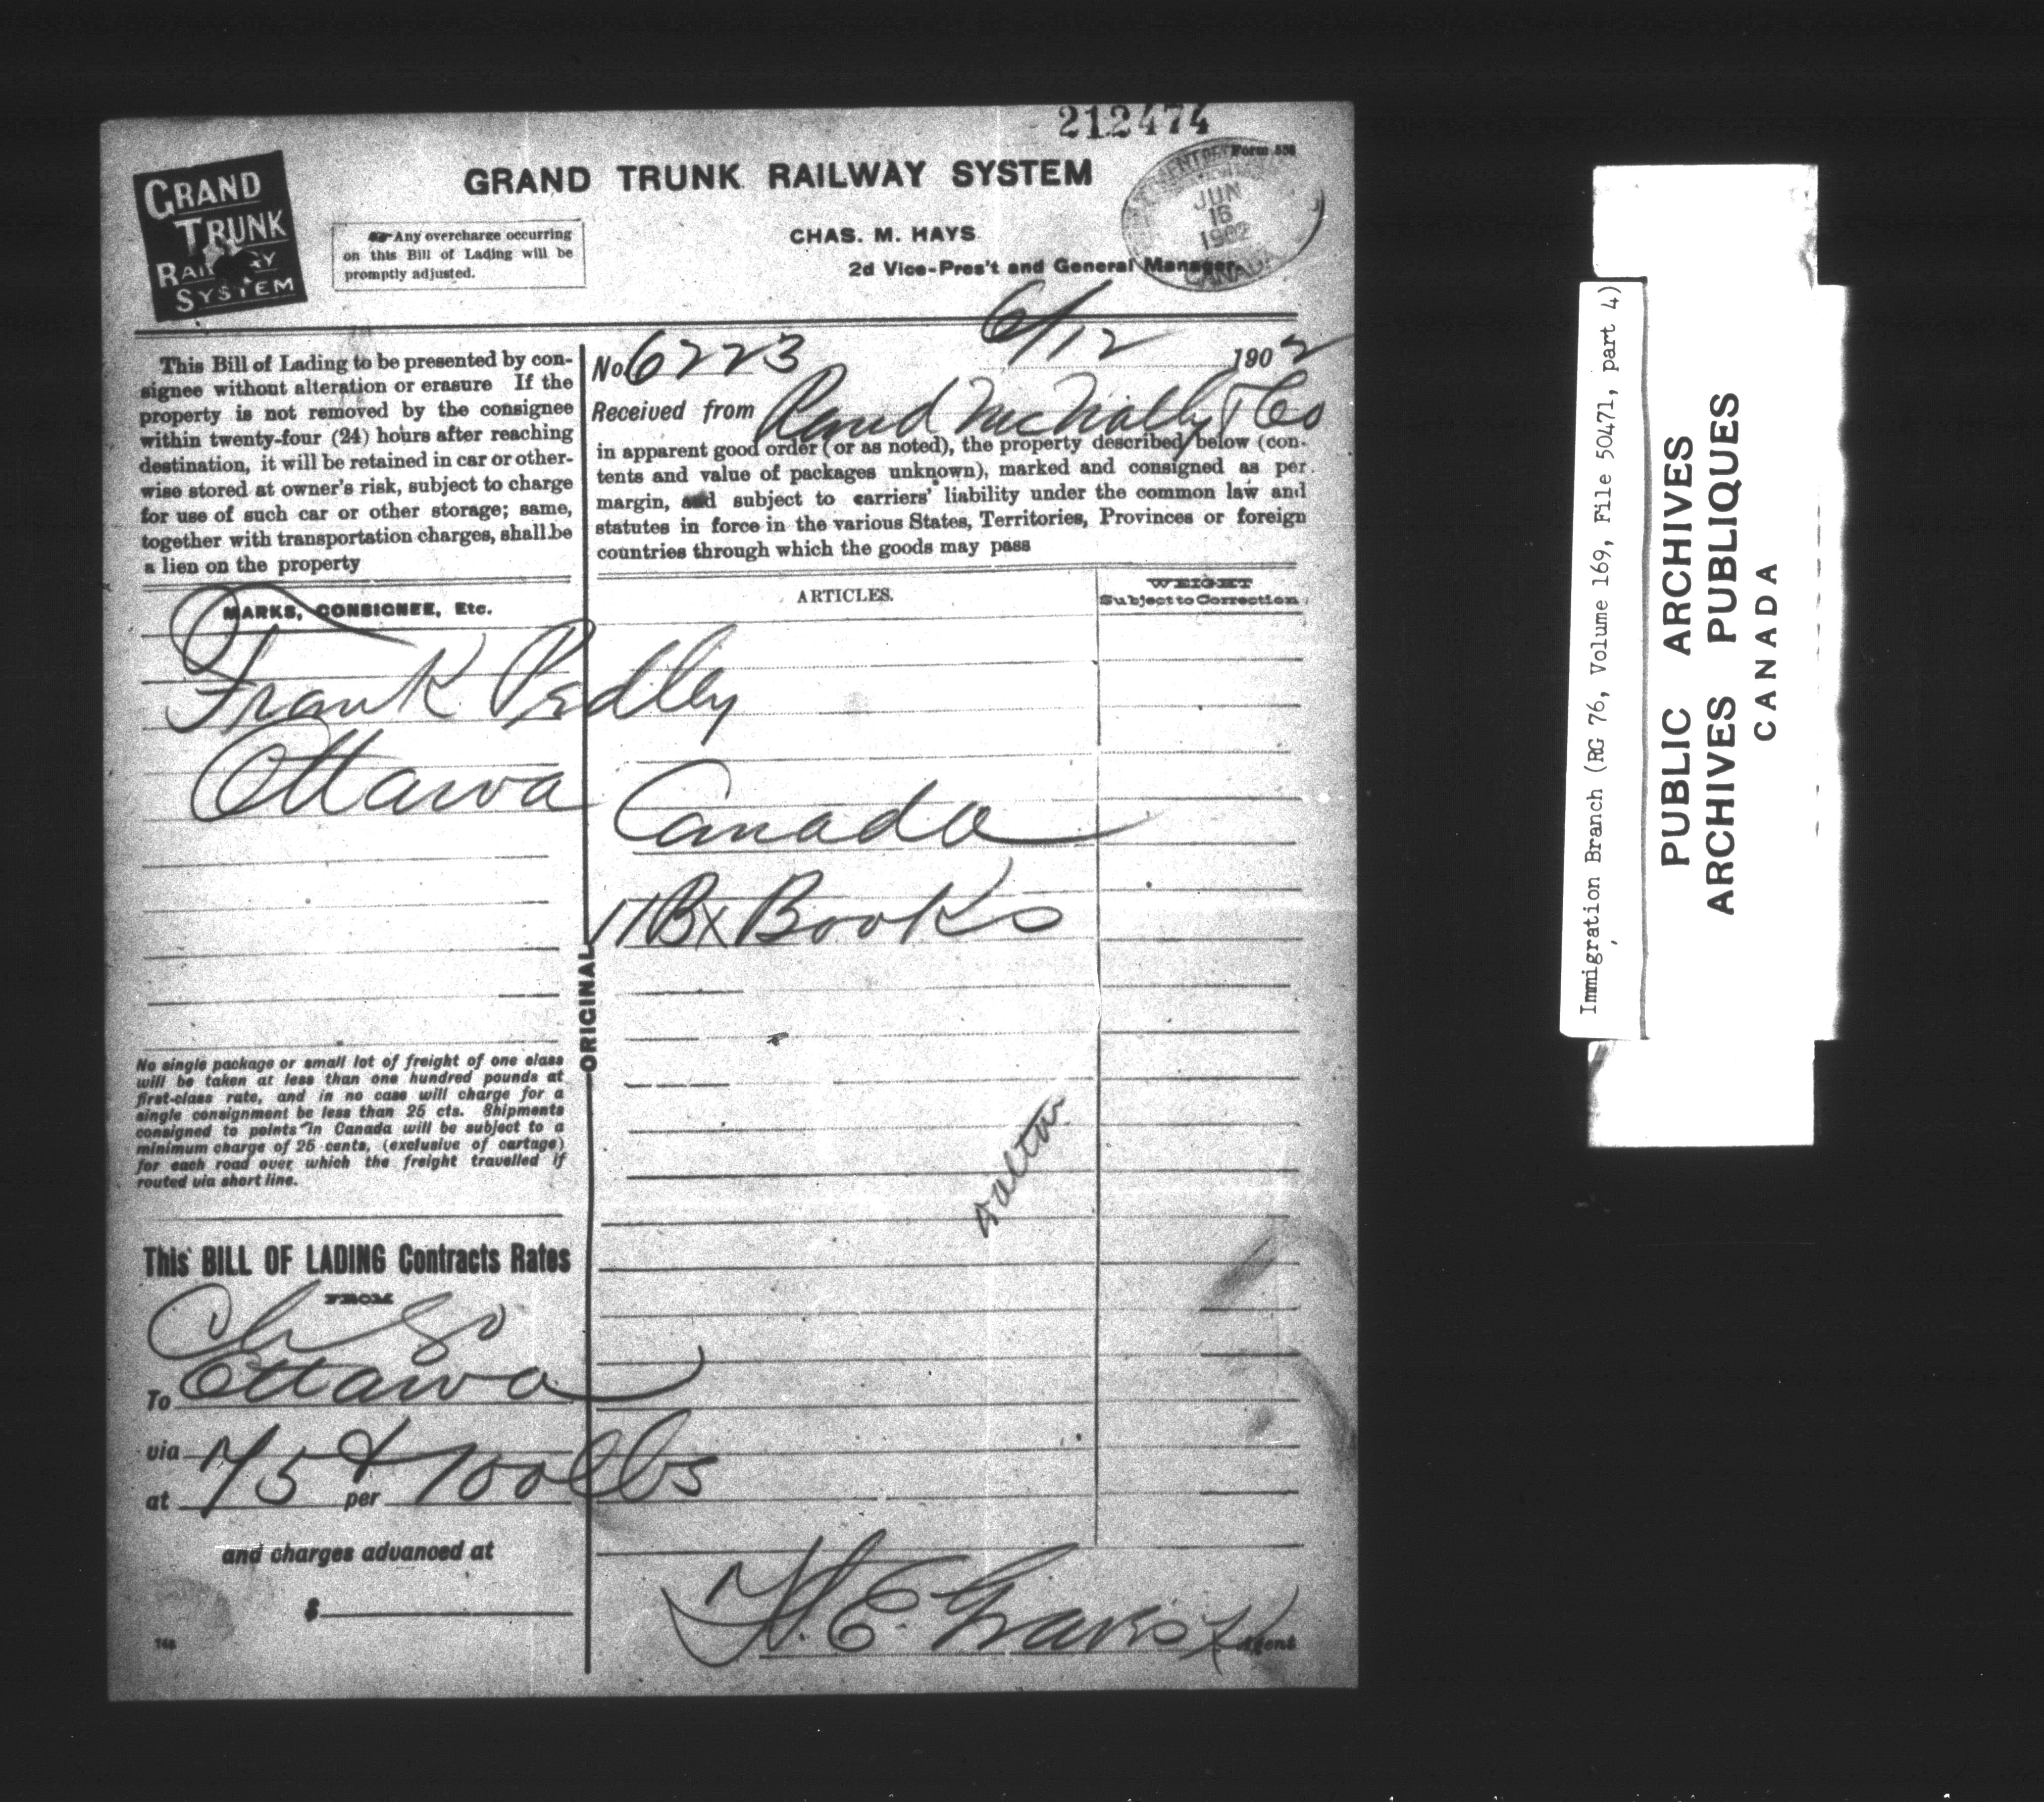 212474
Form 538
GRAND TRUNK RAILWAY SYSTEM
GRAND
TRUNK
RAILWAY
SYSTEM
Any overcharge occurring
on this Bill of Lading will be
promptly adjusted.
CHAS. M. HAYS
2d Vice-Pres't and General Manager
JUN
16
1902
CANADA
This Bill of Lading to be presented by con-
signee without alteration or erasure If the
property is not removed by the consignee
within twenty-four (24) hours after reaching
destination, it will be retained in car or other-
wise stored at owner's risk, subject to charge
for use of such car or other storage; same,
together with transportation charges, shall be
a lien on the property
No 6223 6/12 1902
Received from Rand McNally & Co
in apparent good order (or as noted), the property described below (con-
tents and value of packages unknown), marked and consigned as per
margin, and subject to carriers' liability under the common law and
statutes in force in the various States, Territories, Provinces or foreign
countries through which the goods may pass
MARKS, CONSIGNEE, Etc.
ARTICLES.
WEIGHT
Subject to Correction
Frank Pedley
Ottawa Canada
11 Bx Books
ORIGINAL
No single package or small lot of freight of one class
will be taken at less than one hundred pounds at
first-class rate, and in no case will charge for a
single consignment be less than 25 cts. Shipments
consigned to points in Canada will be subject to a
minimum charge of 25 cents, (exclusive of cartage)
for each road over which the freight travelled if
routed via short line.
This BILL OF LADING Contracts Rates
FROM
Chgo
To Ottawa
via
at 75 per 100 lbs
and charges advanced at
$
Agent
Immigration Branch (RG 76, Volume 169, File 50471, part 4)
PUBLIC ARCHIVES
ARCHIVES PUBLIQUES
CANADA